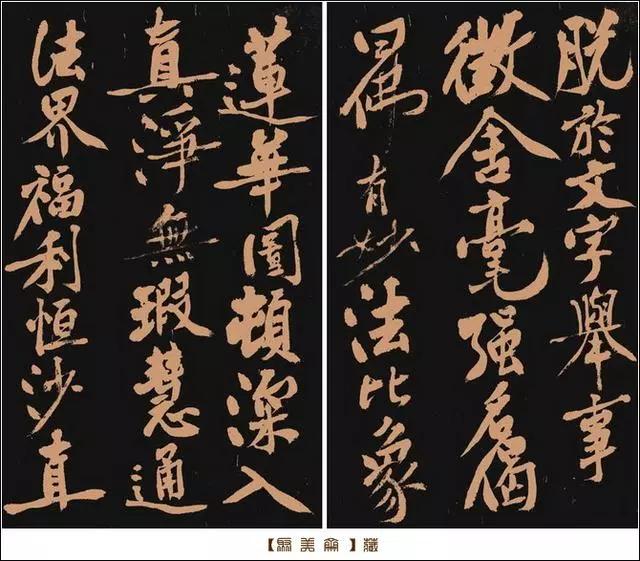 脱於文字舉事
徵舍毫强名
有妙法比象
蓮華圖頓深入
真淨無瑕慧通
法界福利恒沙直
美 藏